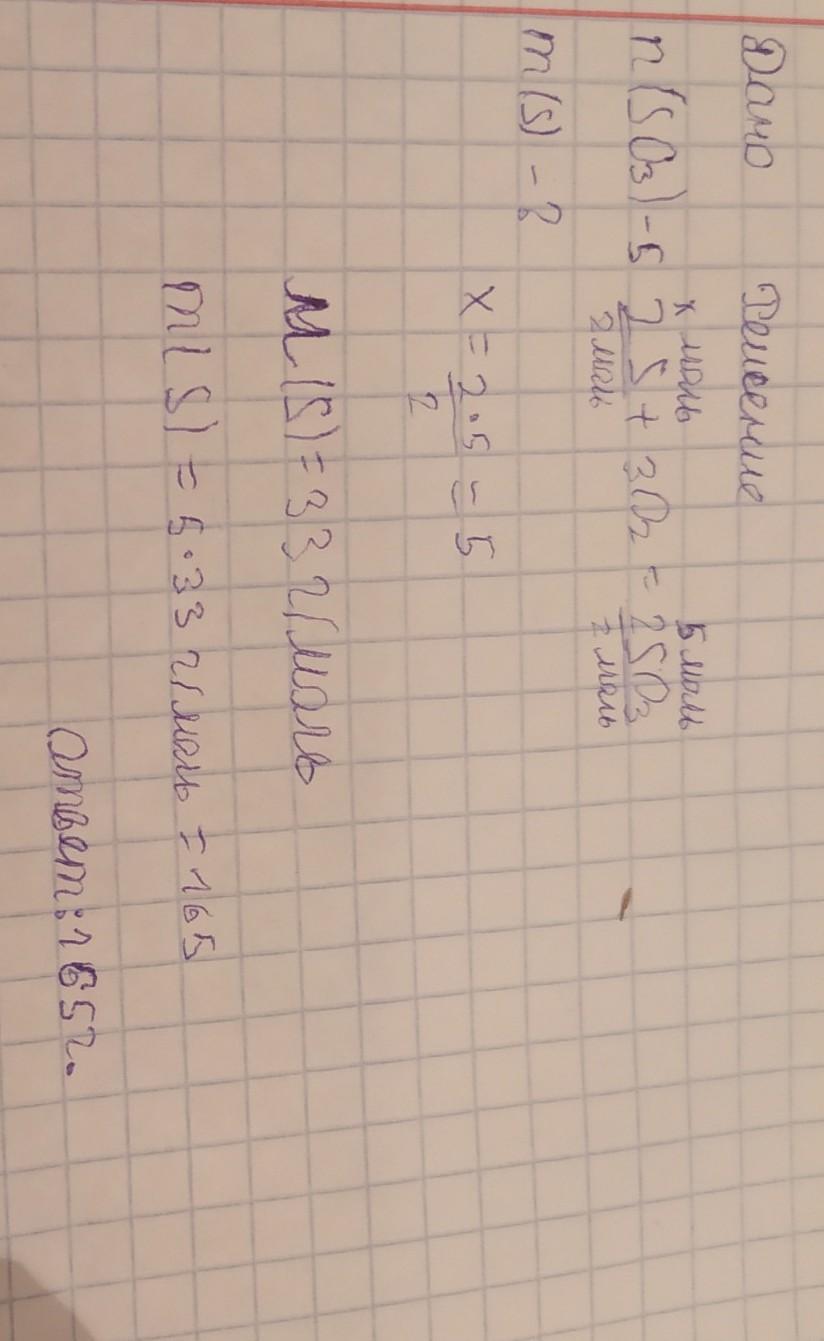 Дано Решение
х моль 5 моль
n(SO3)-5 2S + 3O2 = 2SO3
2 моль 2 моль
m(S) - ?
x = 2·5/2 = 5
M(S)=33 г/моль
m(S) = 5·33 г/моль = 165
Ответ: 165г.